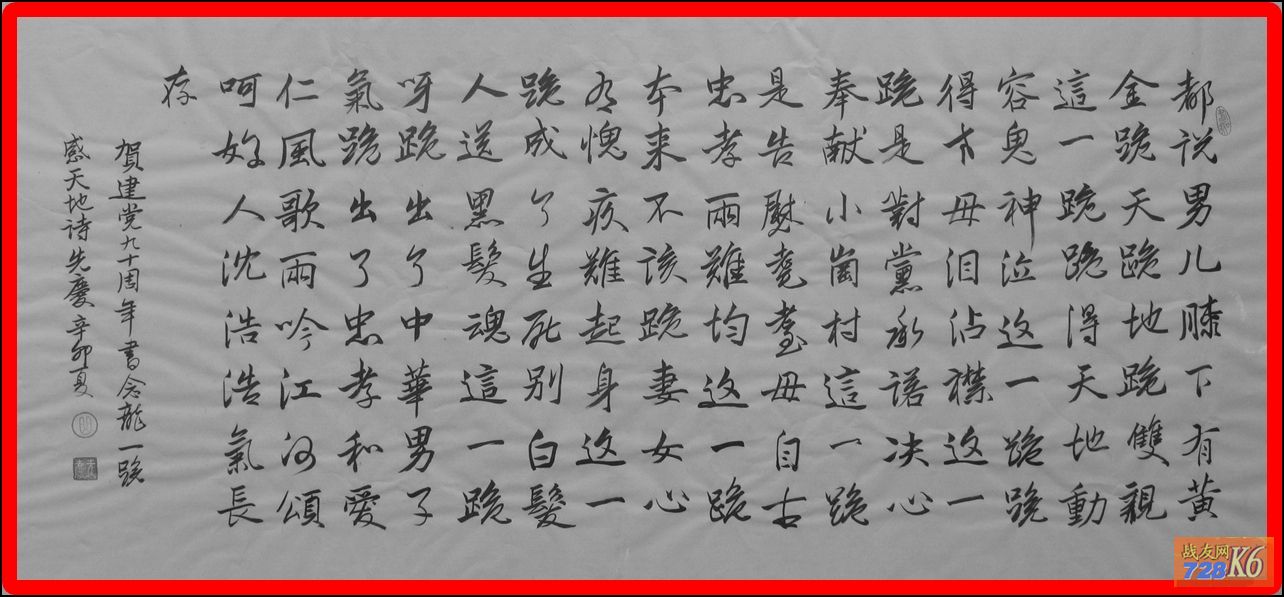 都说男儿膝下有黄
金跪天跪地跪雙親
這一跪跪得天地動
容鬼神泣这一跪跪
得才母泪沾襟这一
跪是對黨承诺决心
奉献小崗村這一跪
是告慰耄耋母自古
忠孝兩難均这一跪
本来不该跪妻女心
有愧疚難起身这一
跪成了生死别白髮
人送黑髮魂這一跪
呀跪出了中華男子
氣跪出了忠孝和愛
仁風歌雨吟江河頌
呵好人沈浩浩氣長
存
賀建党九十周年書念龍一跪
感天地诗先慶辛卯夏
战友网
728K6